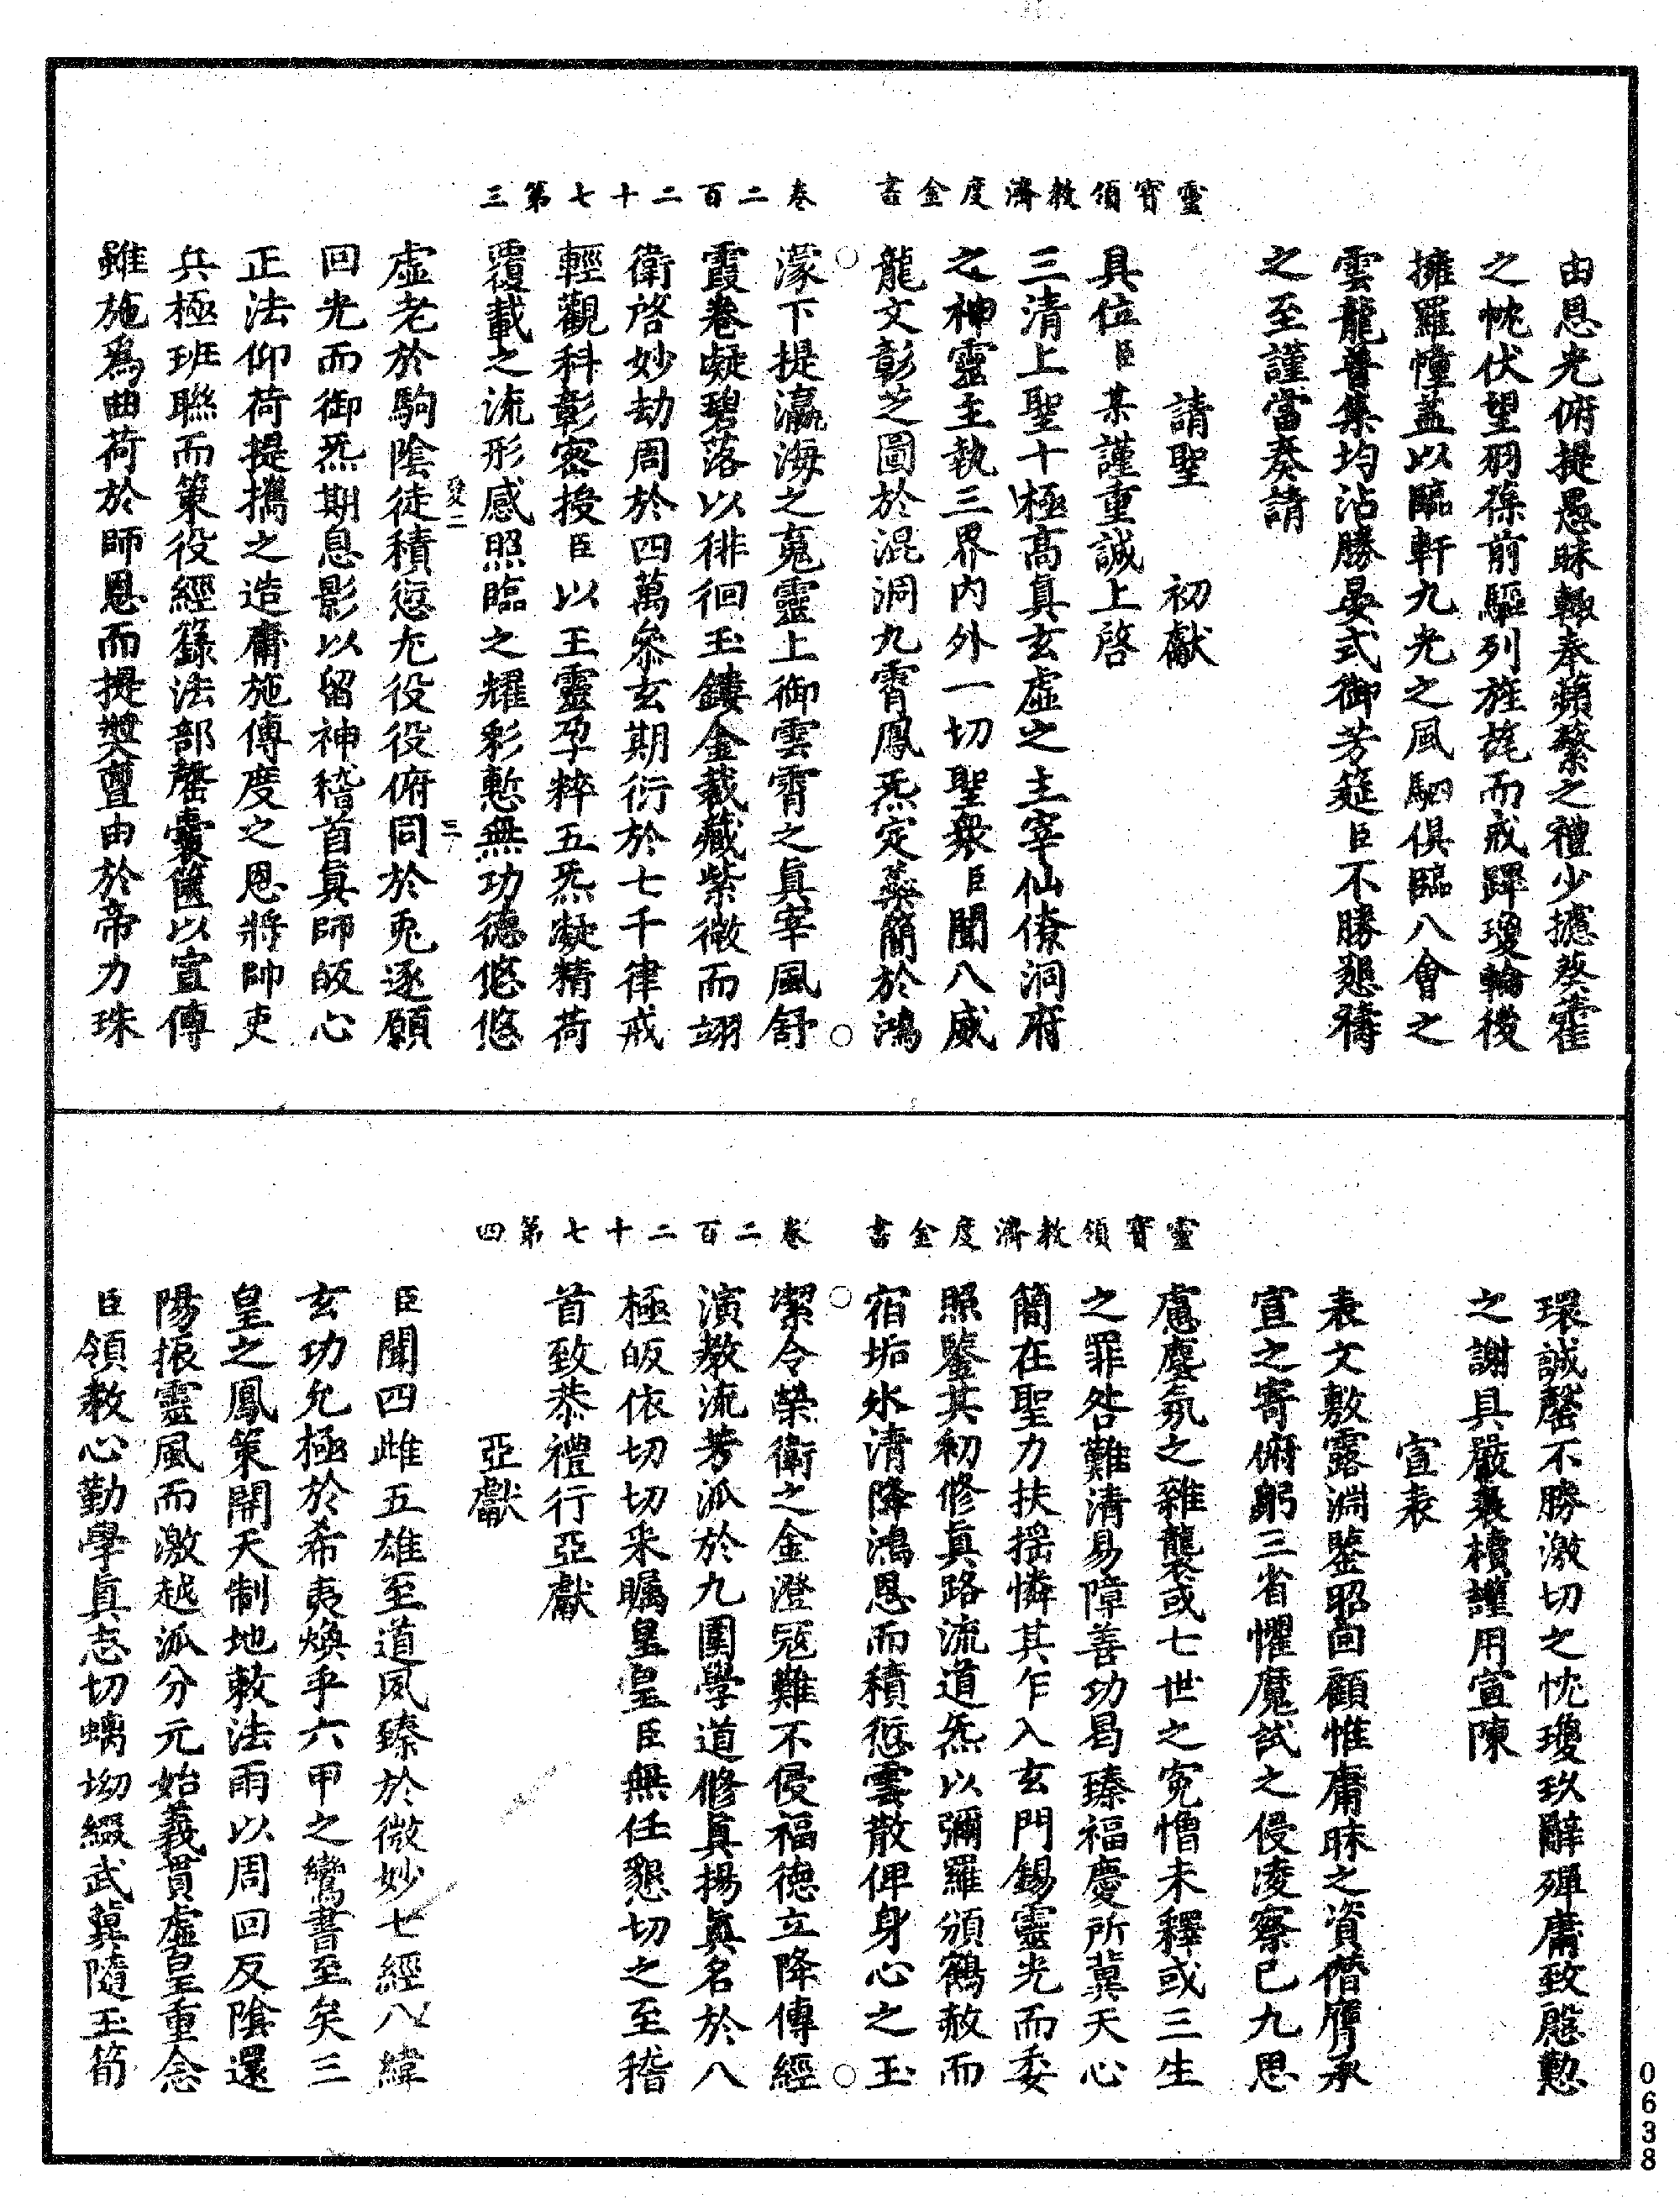 靈寶領教濟度金書　卷二百二十七第三
由恩光俯提愚昧輙奉蘋蘩之禮少攄葵藿
之忱伏望羽葆前驅列旌旄而戒蹕瓊輪後
擁羅幢蓋以臨軒九光之風駟俱臨八會之
雲龍普集均沾勝晏式御芳筵臣不勝懇禱
之至謹當奏請
請聖　初獻
具位臣某謹重誠上啓
三清上聖十極高真玄虛之主宰仙僚洞府
之神靈主執三界內外一切聖衆臣聞八威
龍文彰芝圖於混洞九霄鳳炁定蘂簡於鴻
濛下提瀛海之嵬靈上御雲霄之真宰風舒
霞卷凝碧落以徘徊玉鏤金裁藏紫微而翊
衛啓妙劫周於四萬叅玄期衍於七千律戒
輕觀科彰密授臣以王靈孕粹五炁凝精荷
覆載之流形感照臨之耀彩慙無功德悠悠
虛老於駒陰徒積愆尤役役俯同於兎逐願
回光而御炁期息影以留神稽首真師皈心
正法仰荷提攜之造庸施傳度之恩將帥吏
兵極班聯而策役經籙法部罄囊篋以宣傳
雖施爲曲荷於師恩而提奬亶由於帝力珠
靈寶領教濟度金書　卷二百二十七第四
環誠罄不勝激切之忱瓊玖辭殫庸致慇懃
之謝具嚴表櫝謹用宣陳
宣表
表文敷露淵鑒昭回顧惟庸昧之資僭膺承
宣之寄俯躬三省懼魔試之侵凌察己九思
慮塵氛之雜襲或七世之寃憎未釋或三生
之罪咎難清易障善功曷臻福慶所冀天心
簡在聖力扶搖憐其乍入玄門錫靈光而委
照鑒其初修真路流道炁以彌羅頒鶴赦而
宿垢氷清降鴻恩而積愆雲散俾身心之玉
潔令榮衛之金澄冦難不侵福德立降傳經
演教流芳派於九圍學道修真揚真名於八
極皈依切切釆矚皇皇臣無任懇切之至稽
首致恭禮行亞獻
亞獻
臣聞四雌五雄至道夙臻於微妙七經八緯
玄功允極於希夷煥乎六甲之鸞書至矣三
皇之鳳策開天制地敕法雨以周回反陰還
陽振靈風而激越派分元始義貫虛皇重念
臣領教心勤學真志切螭坳綴武冀隨玉筍
0638